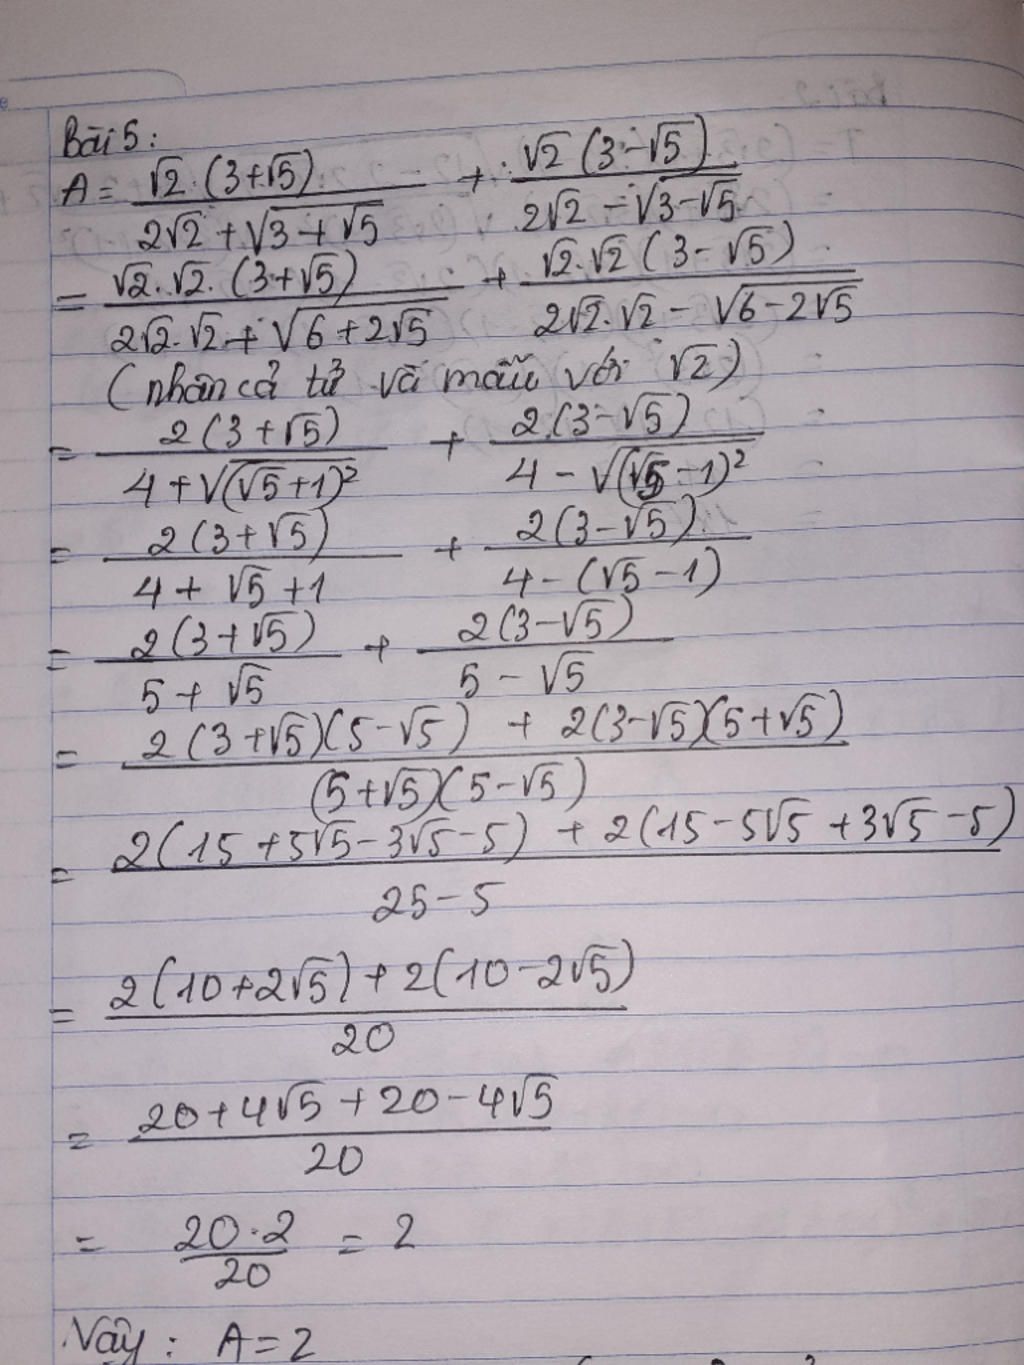 Bài 5:
A = √2.(3+√5) / (2√2 + √(3+√5)) + √2(3-√5) / (2√2 - √(3-√5))
= √2.√2.(3+√5) / (2√2.√2 + √(6+2√5)) + √2.√2(3-√5) / (2√2.√2 - √(6-2√5))
(nhân cả tử và mẫu với √2)
= 2(3+√5) / (4+√((√5+1)²)) + 2(3-√5) / (4-√((√5-1)²))
= 2(3+√5) / (4+√5+1) + 2(3-√5) / (4-(√5-1))
= 2(3+√5) / (5+√5) + 2(3-√5) / (5-√5)
= (2(3+√5)(5-√5) + 2(3-√5)(5+√5)) / ((5+√5)(5-√5))
= (2(15+5√5-3√5-5) + 2(15-5√5+3√5-5)) / (25-5)
= (2(10+2√5)+2(10-2√5)) / 20
= (20+4√5+20-4√5) / 20
= 20.2 / 20 = 2
Vậy: A=2